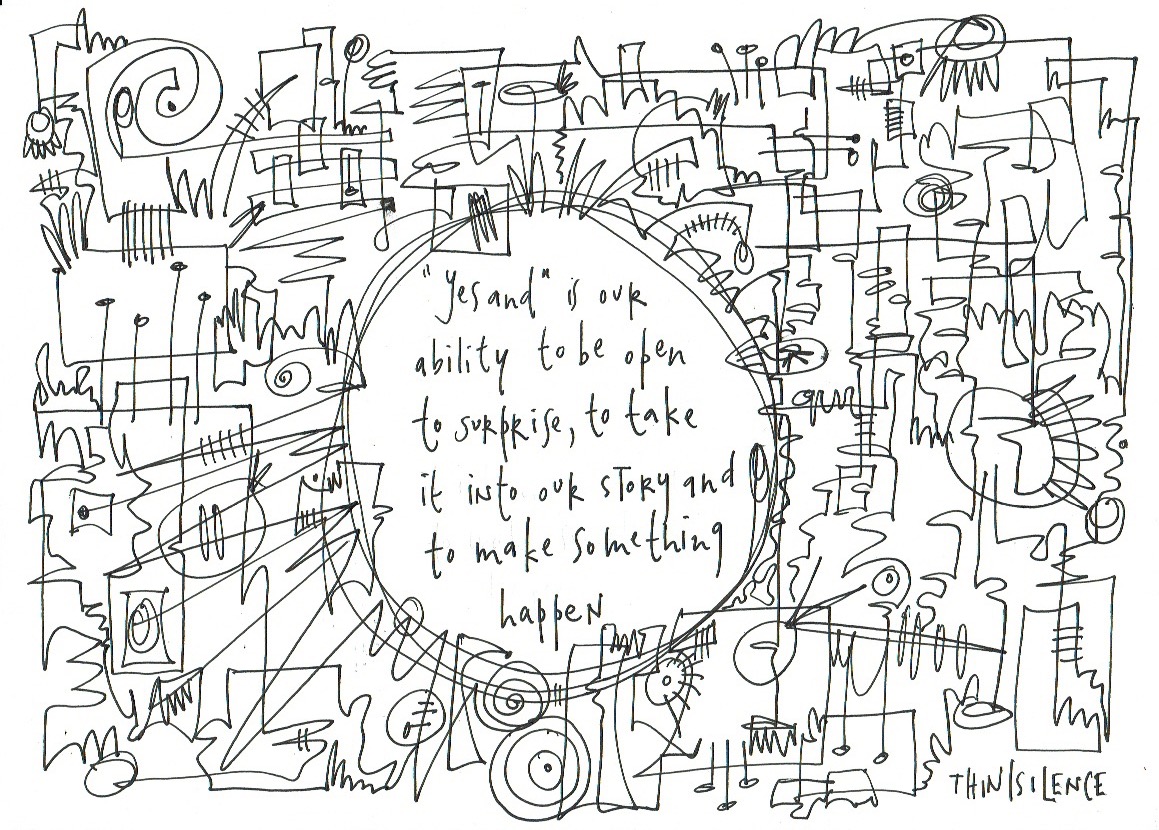 "Yes and" is our
ability to be open
to surprise, to take
it into our story and
to make something
happen
THIN|SILENCE